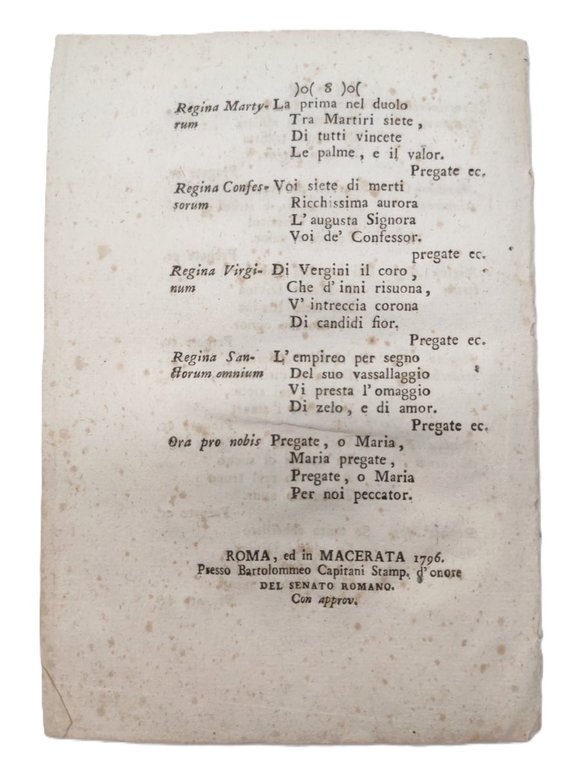 )o( 8 )o(
Regina Marty- La prima nel duolo
rum Tra Martiri siete,
Di tutti vincete
Le palme, e il valor.
Pregate ec.
Regina Confes- Voi siete di merti
sorum Ricchissima aurora
L'augusta Signora
Voi de' Confessor.
pregate ec.
Regina Virgi- Di Vergini il coro,
num Che d'inni risuona,
V'intreccia corona
Di candidi fior.
Pregate ec.
Regina San- L'empireo per segno
ctorum omnium Del suo vassallaggio
Vi presta l'omaggio
Di zelo, e di amor.
Pregate ec.
Ora pro nobis Pregate, o Maria,
Maria pregate,
Pregate, o Maria
Per noi peccator.
ROMA, ed in MACERATA 1796.
Presso Bartolommeo Capitani Stamp. d'onore
DEL SENATO ROMANO.
Con approv.